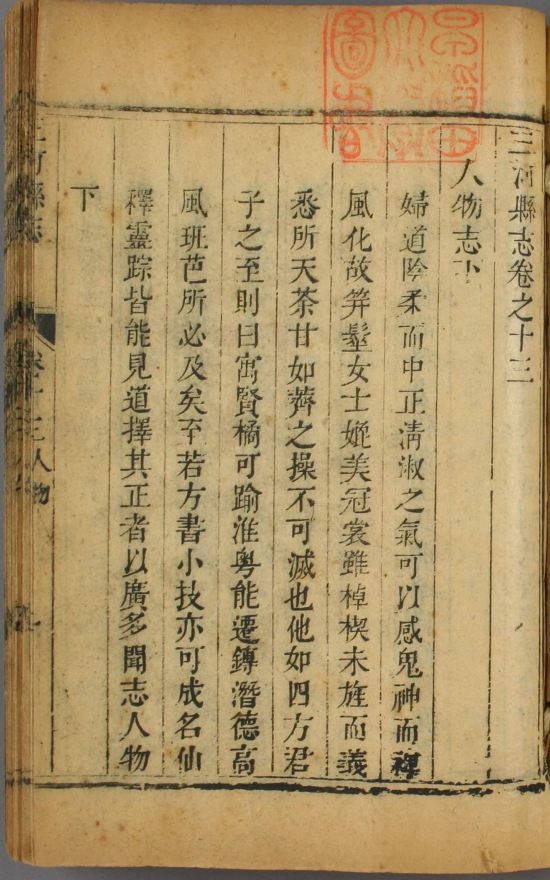 三河縣志卷之十三
人物志下
婦道陰柔而中正淸淑之氣可以感鬼神而裨
風化故笄髽女士媲美冠裳雖棹楔未旌而義
悉所天荼甘如薺之操不可滅也他如四方君
子之至則曰寓賢橘可踰淮粤能遷鎛潛德高
風班芭所必及矣至若方書小技亦可成名仙
釋靈踪皆能見道擇其正者以廣多聞志人物
下
三河縣志
卷十三人物